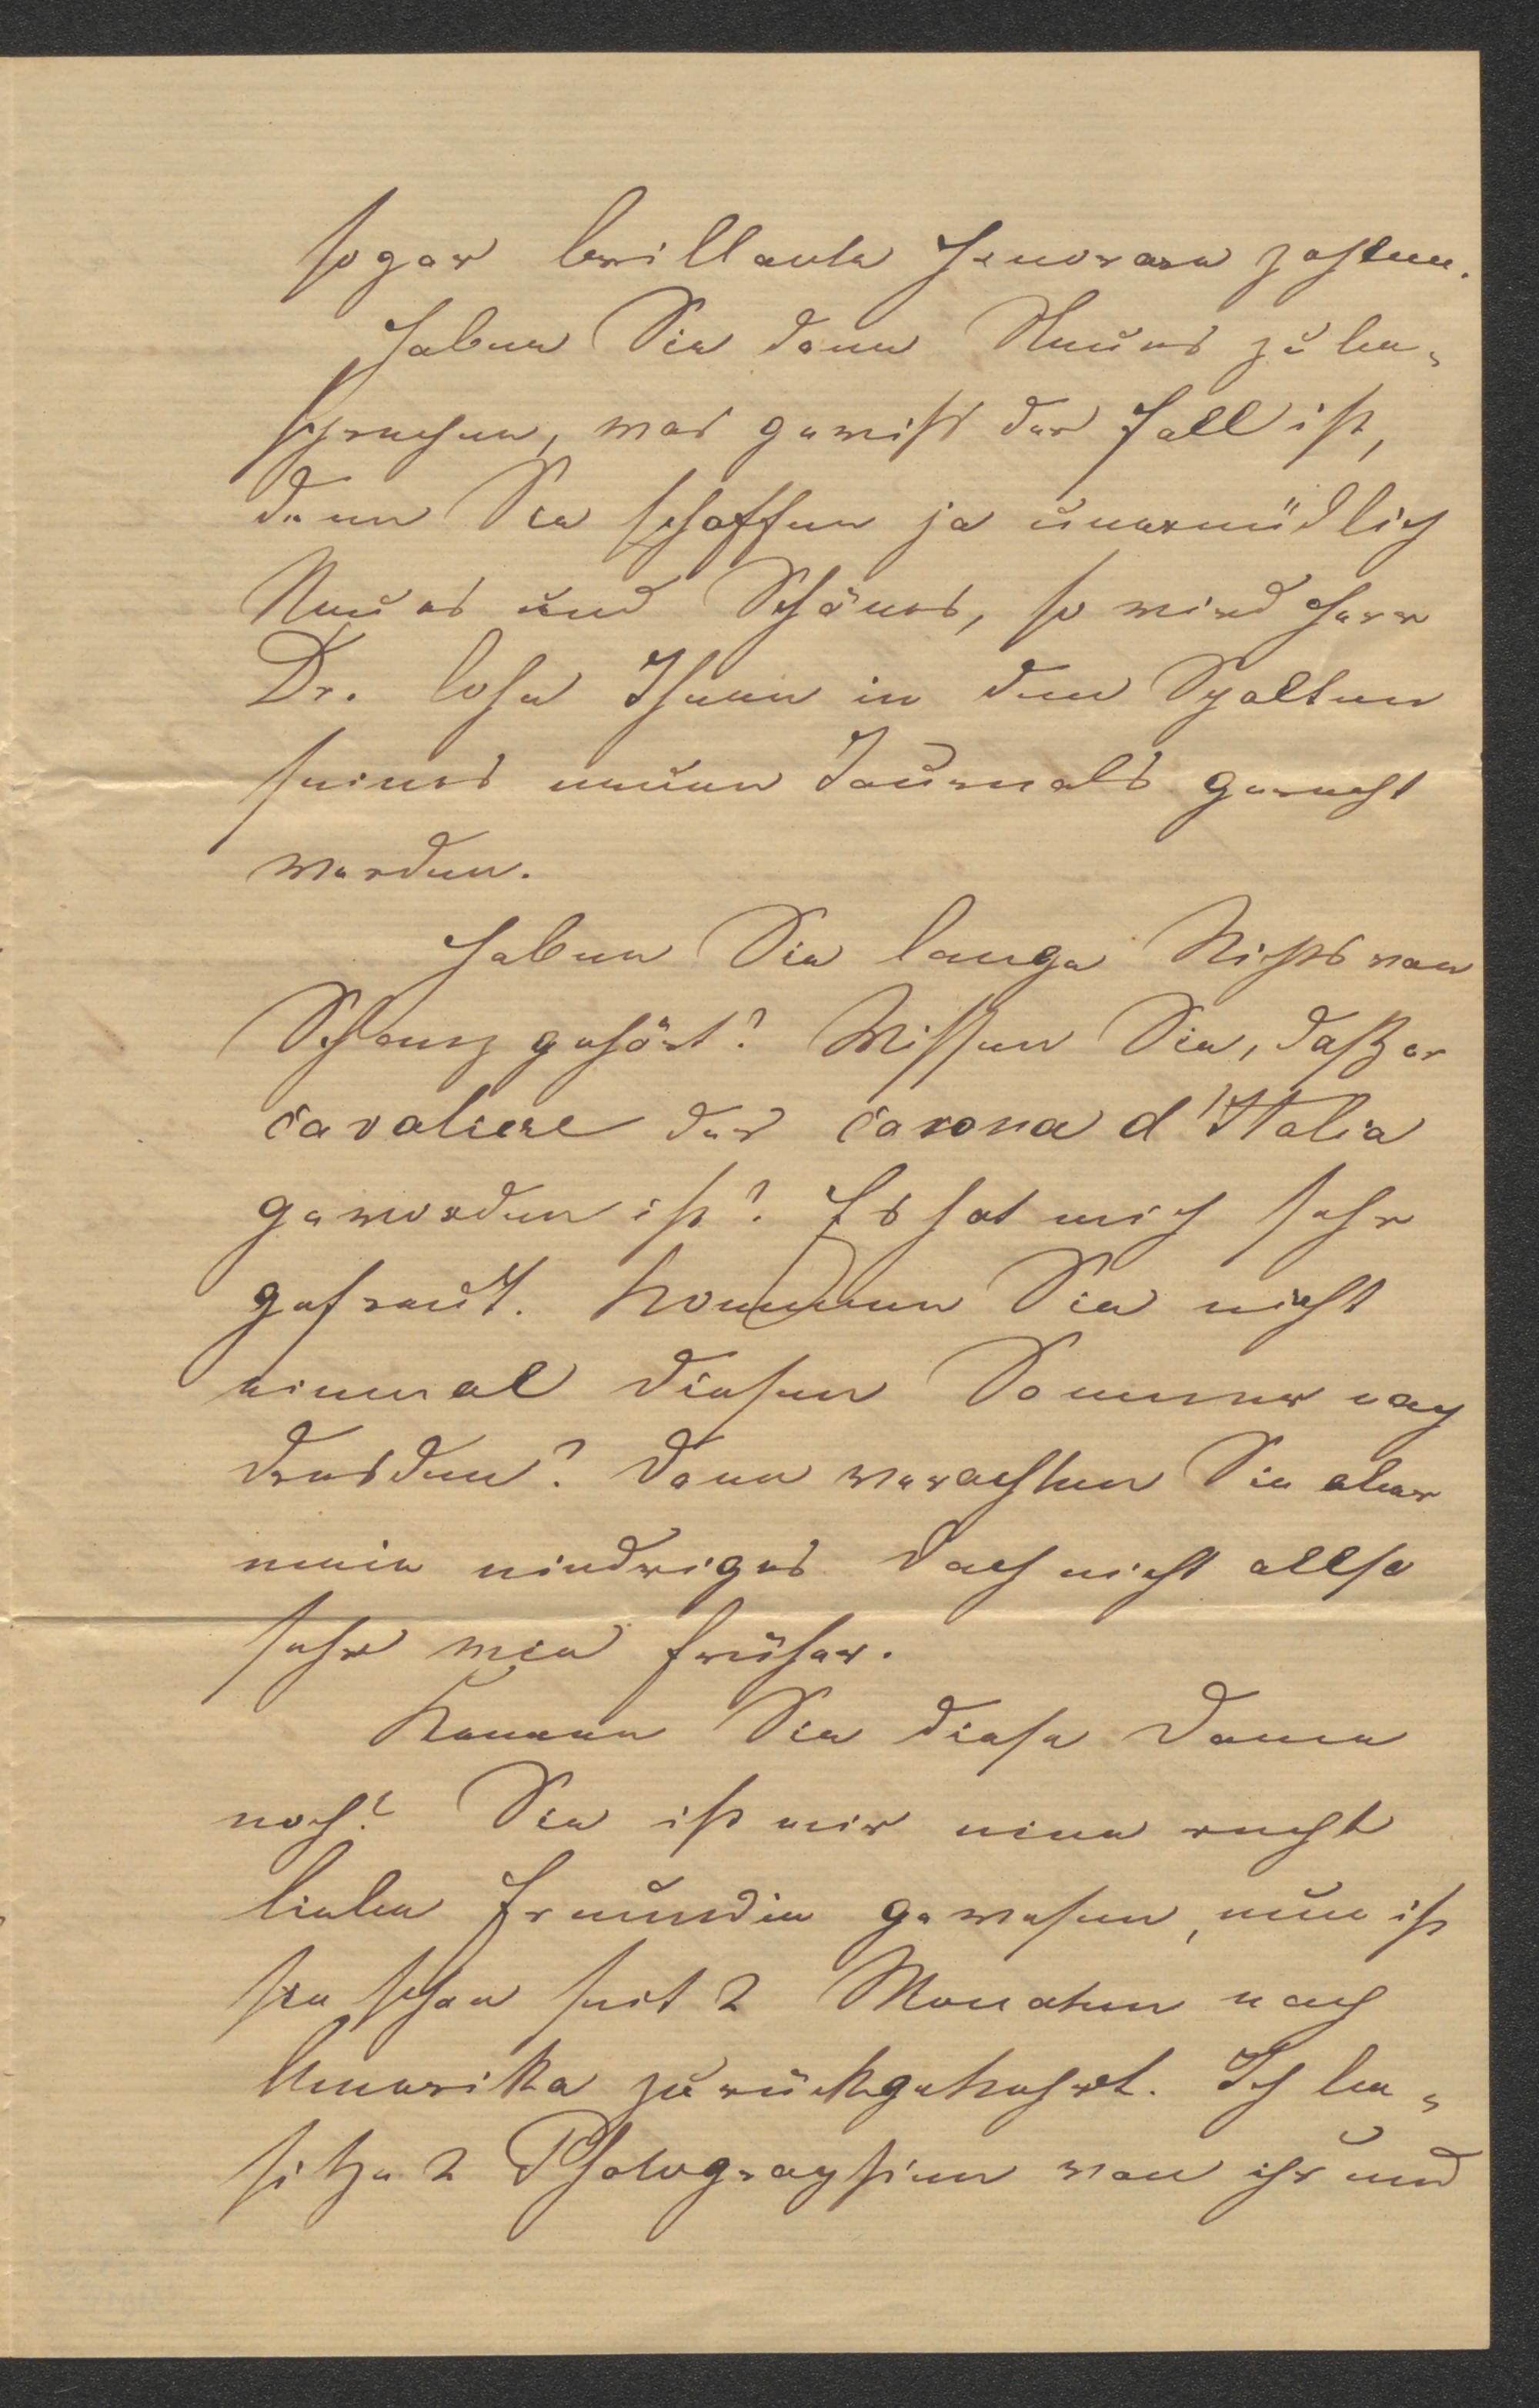 sogar brillante Honorare zahlen.
Haben Sie denn Neues zu be-
sprechen, was gewiß der Fall ist,
denn Sie schaffen ja unermüdlich
Neues und Schönes, so wird Herr
Dr. Lohn Ihnen in den Spalten
seines neuen Journals gerecht
werden.
Haben Sie lange Nichts von
Schanz gehört? Wissen Sie, daß er
cavaliere der corona d'Italia
geworden ist? Es hat mich sehr
gefreut. Kommen Sie nicht
einmal diesen Sommer nach
Dresden? Dann verachten Sie aber
mein niedriges Dach nicht allso
sehr wie früher.
Kennen Sie diese Dame
noch? Sie ist mir eine recht
liebe Freundin gewesen, nun ist
sie schon seit 2 Monaten nach
Amerika zurückgekehrt. Ich be-
sitze 2 Photographien von ihr und